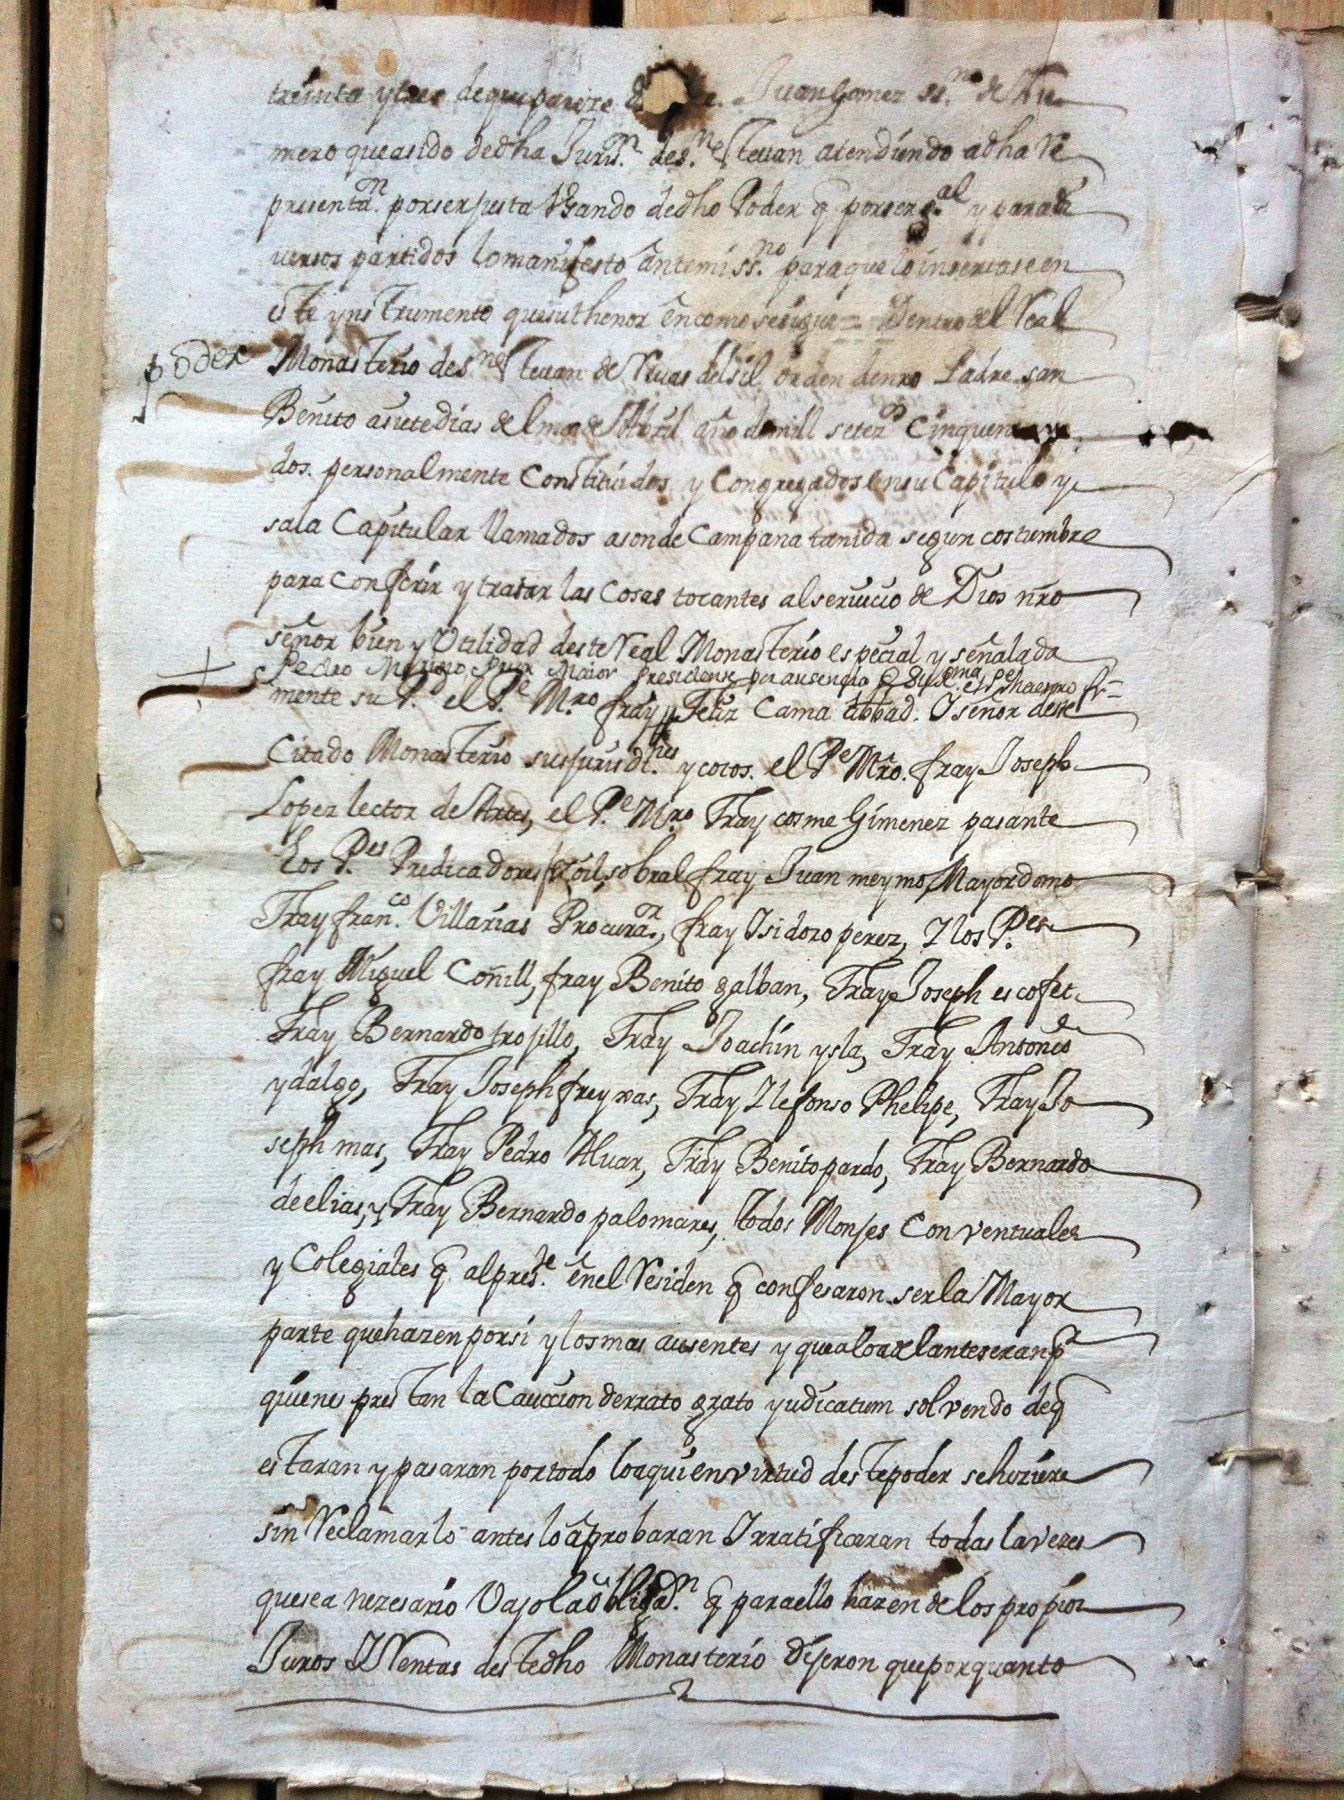 treinta ytres deque pareze Juan Gomez ss.no de Nu
mero queasido dedha Juris.n des.n esteuan atendiendo adha Re
presentan.n porserjusta Usando dedho Poder q porserg.al y paradi
uersos partidos lomanifesto antemi ss.no paraqueloinsertaseen
este ynstrumento quesuthenor encomosesigue = Dentrodel Real
poder
Monasterio des.n esteuan de Riuas delsil orden denro Padre san
Benito asietedias del mes de Abril año demill setez.os Cinquenta
dos. personalmente Constituidos y Congregados ensu Capitulo y
sala Capitular llamados asonde Campana tanida segun costumbre
para Conferir y tratar las Cosas tocantes alseruicio de Dios nro
señor bien y Utilidad deste Real Monasterio especial y señalada
Pedro Prior Maior Presidente por ausencia el P. Maestro fr=
mente su P.d el P.e M.ro fray Feliz Cama abbad. Y señor deste
Citado Monasterio susjurisd.nes y cotos. el P.e Mro. fray Joseph
Lopez lector de Artes, el P.e M.ro Fray cosme Gimenez pasante
Los P.es Predicadores froil, sobral fray Juan meymo, Mayordomo
Fray fran.co Villarias Procurar.or, fray Isidoro perez, Y los P.es
fray Miguel Coñill, fray Benito galban, Fray Joseph escofet
Fray Bernardo trosillo, Fray Joachin ysla, Fray Antonio de
ydalgo, Fray Joseph freyxas, Fray Ylefonso Phelipe, Fray Jo
seph mas, Fray Pedro Aluar, Fray Benito pardo, Fray Bernardo
deelias, y Fray Bernardo palomares, todos Monjes Conventuales
y Colegiales q alpres.te enel Residen q confesaron serla Mayor
parte quehazen porsi ylosmas ausentes y quealoadelanteseran pr
quienes prestan la Cauccion derrato grato yudicatum solvendo deq
estaran y pasaran portodo loaquienvirtud destepoder sehiziere
sin Reclamarlo antes lo aprobaran Yrratificaran todas lavezes
quesea nezesario Vajola obligaz.n q paraello hazen delos propios
Juros Y Rentas destedho Monasterio dijeron queporquanto